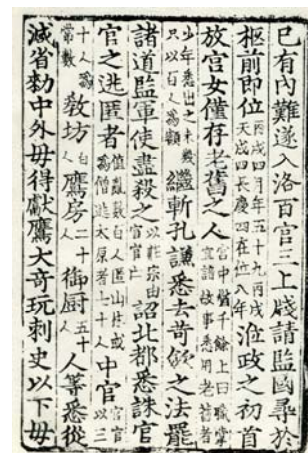 已有內難遂入洛百官三上牋請監國尋於
柩前即位丙戌四月年五十九丙戌天成四長慶四在位八年涖政之初首
放宮女僅存老舊之人宮中千餘上曰職掌宜諳故事悉用老舊者
少年悉出之未幾只以百人爲額繼斬孔謙悉去苛歛之法罷
諸道監軍使盡殺之以莊宗由宦官亡詔北都悉誅宦
官之逃匿者宦亂數百人匿山林或爲僧逃太原者七十人中官宦官以三
十人爲常數敎坊百人鷹房二十人御厨五十人人等悉從
減省勑中外毋得獻鷹犬奇玩刺史以下毋